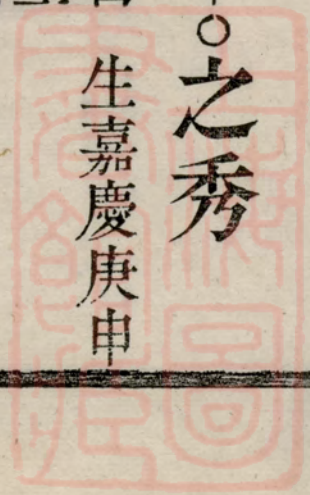 ○之秀
生嘉慶庚申